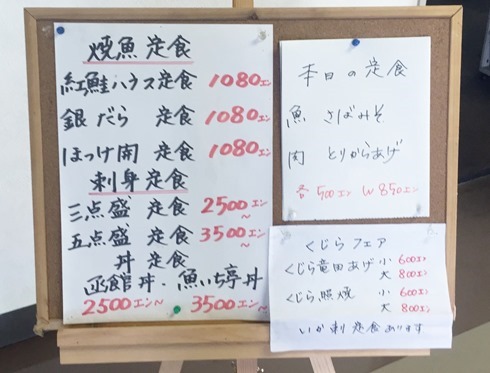 焼魚定食
紅鮭ハラス定食 1080エン
銀だら 定食 1080エン
ほっけ開 定食 1080エン
刺身定食
三点盛 定食 2500エン～
五点盛 定食 3500エン～
丼 定食
函館丼・魚いち亭丼
2500エン～ 3500エン～
本日の定食
魚 さばみそ
肉 とりからあげ
各500エン W850エン
くじらフェア
くじら竜田あげ 小 600エン
大 800エン
くじら照焼 小 600エン
大 800エン
いか刺定食あります